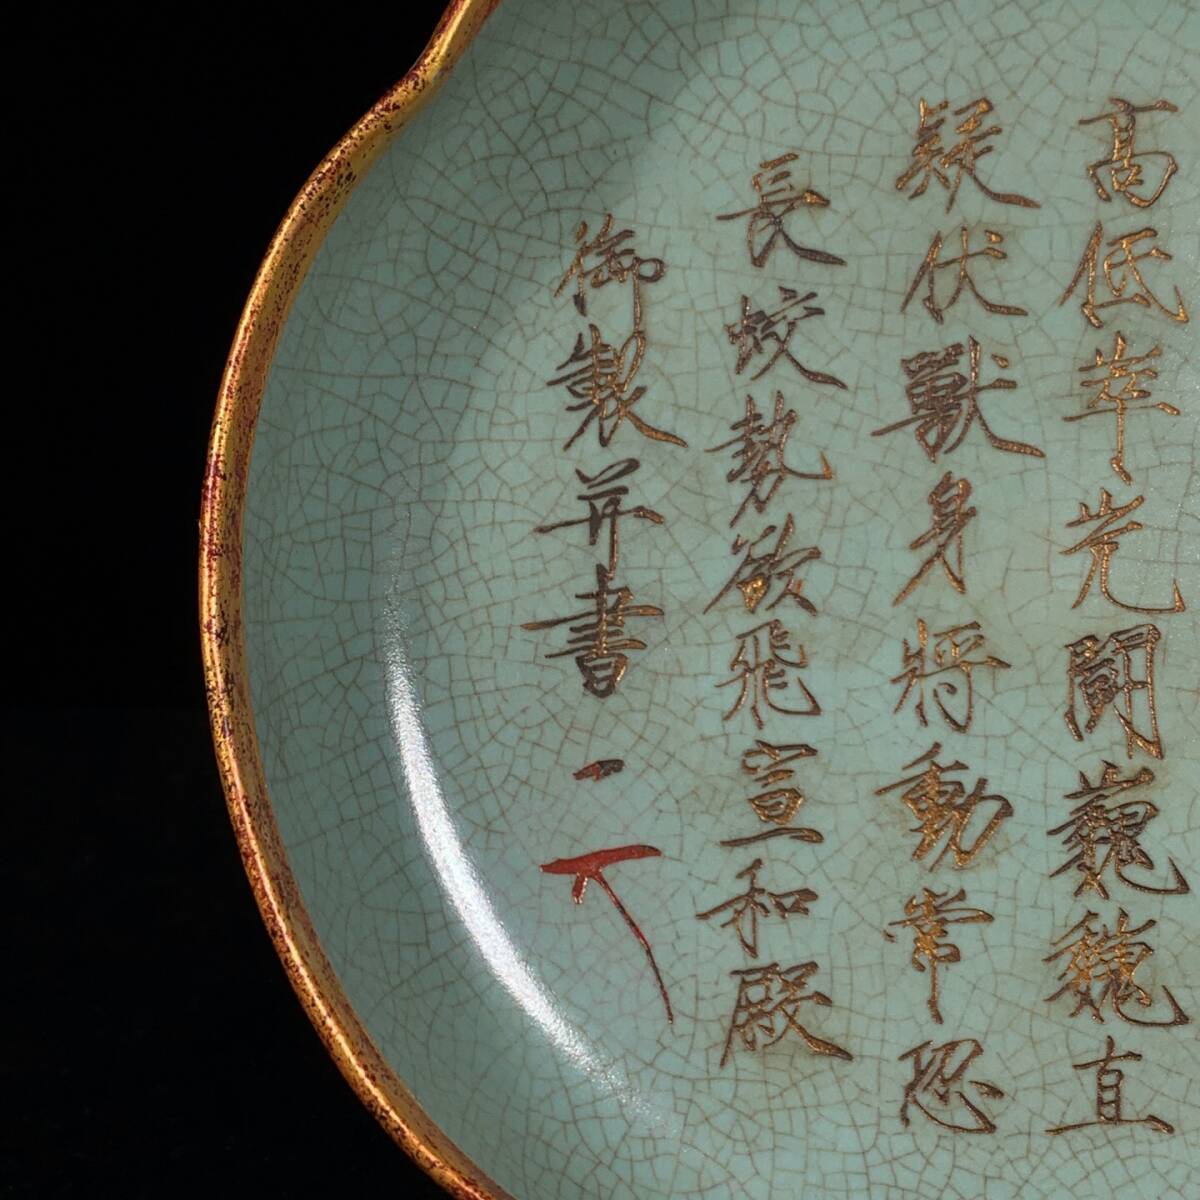 高低萃光闘巍巍直
疑伏獸身將動常恐
長蛟勢欲飛宣和殿
御製并書